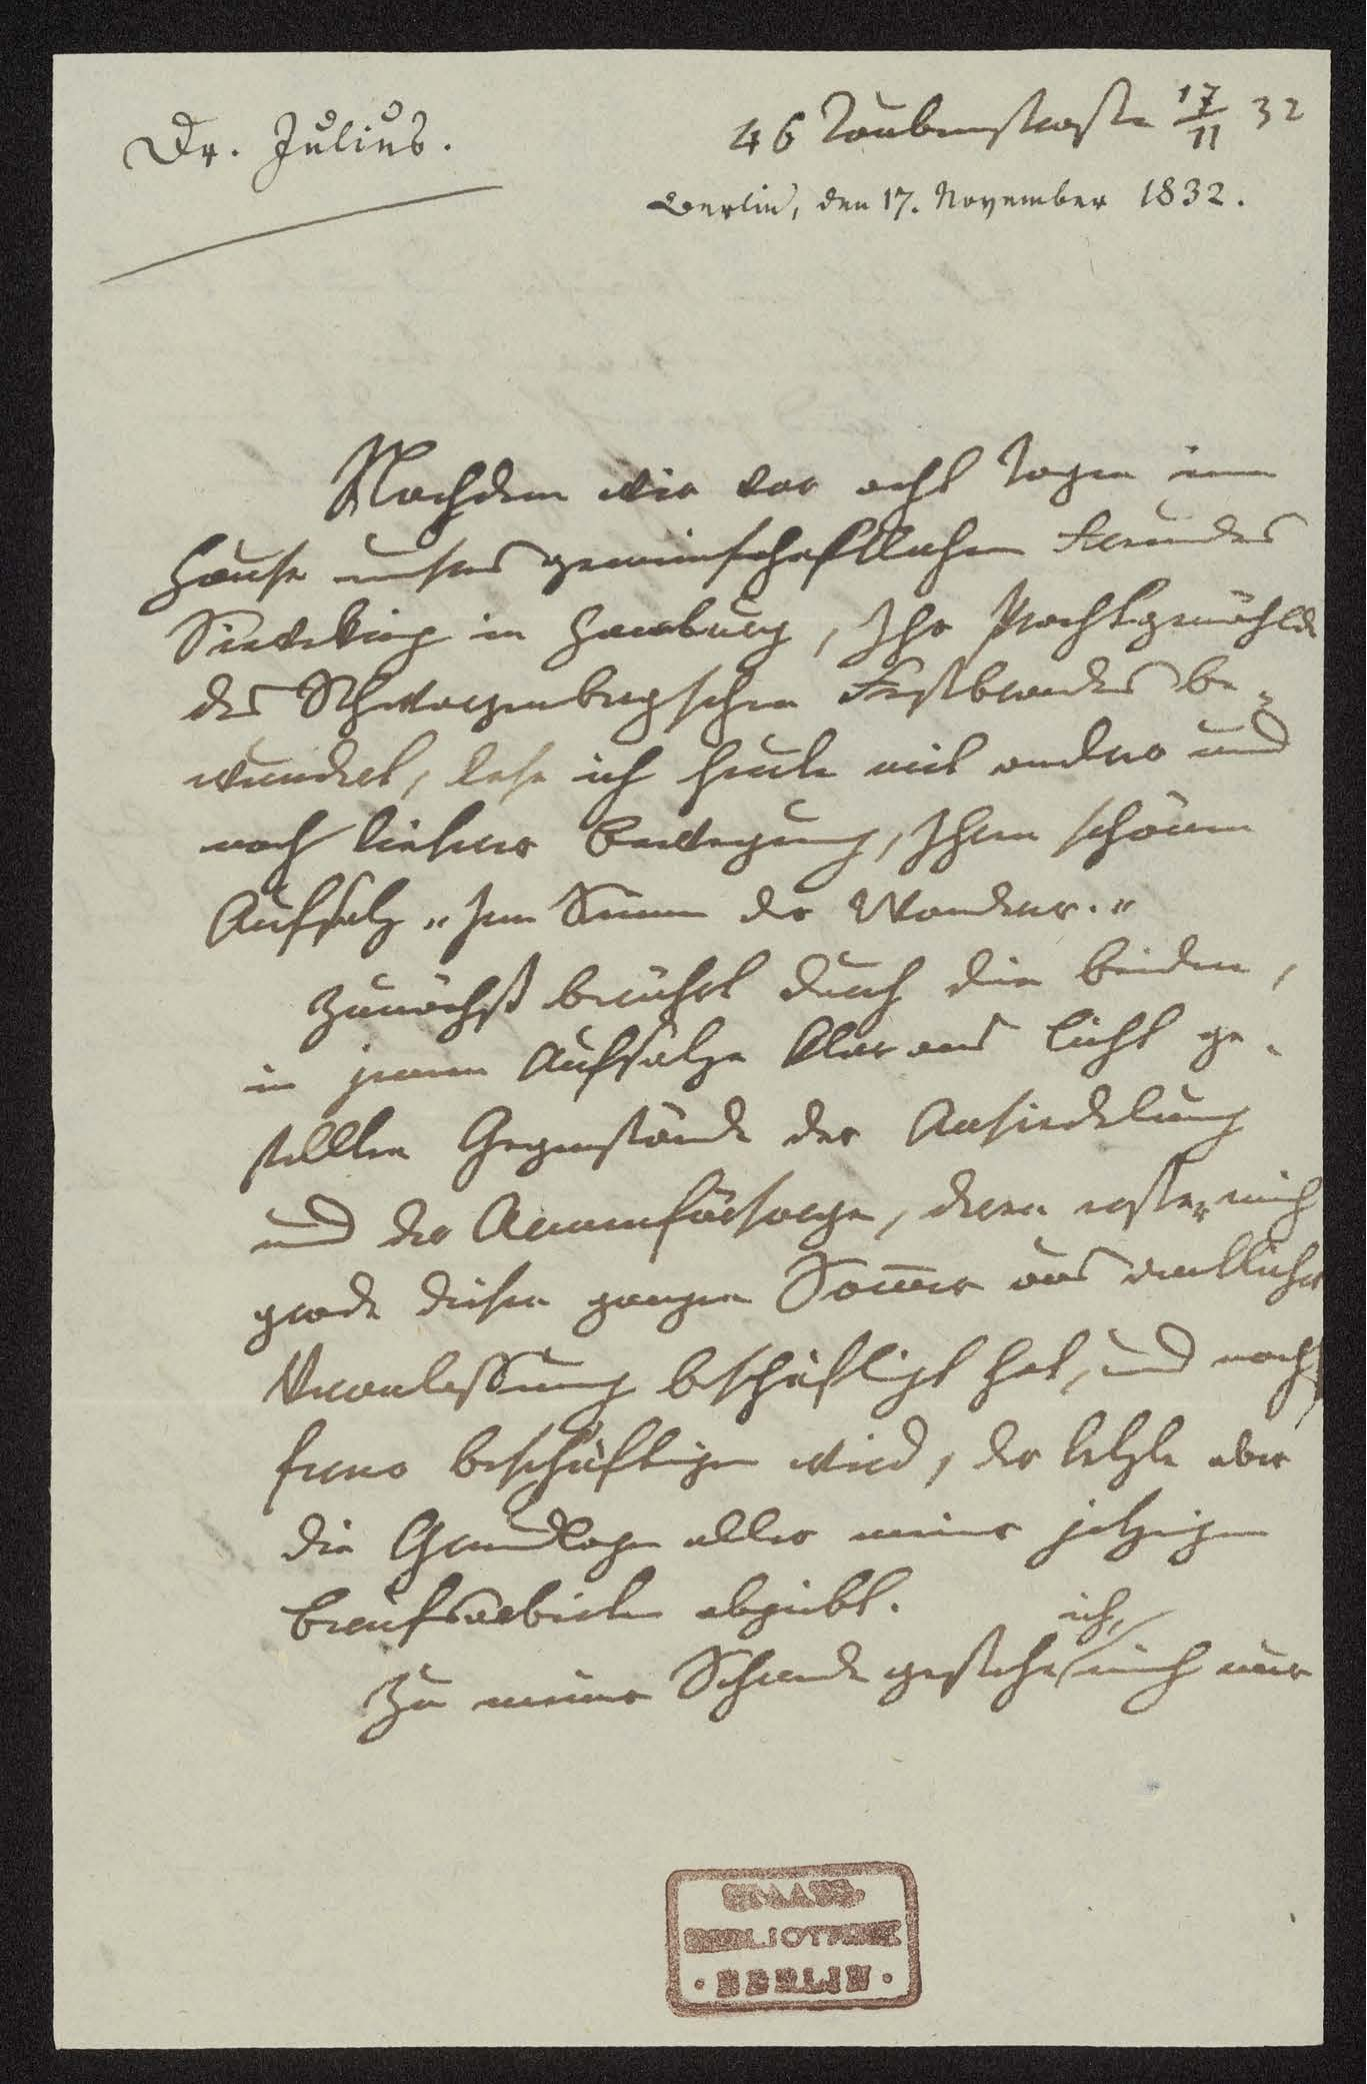 Dr. Julius.
46 Taubenstraße 17/11 32
Berlin, den 17. November 1832.
Nachdem wir vor acht Tagen im
Hause unsers gemeinschaftlichen Freundes
Sieveking in Hamburg, Ihr Prachtgemählde
des Schwarzenbergschen Festbrandes be-
wundert, lese ich heute mit andrer und
noch tieferer Bewegung, Ihren schönen
Aufsatz „Im Sinne der Wanderer.“
Zunächst berührt durch die beiden,
in jenem Aufsatze klar ans Licht ge-
stellten Gegenstände der Ansiedelung
und der Armenfürsorge, deren erster mich
grade diesen ganzen Sommer aus amtlicher
Veranlassung beschäftigt hat, und noch
ferner beschäftigen wird, der letzte aber
die Grundlage aller meiner jetzigen
Berufsarbeiten abgiebt.
Zu meiner Schande gestehe ich, mich nur
STAATS-
BIBLIOTHEK
• BERLIN •